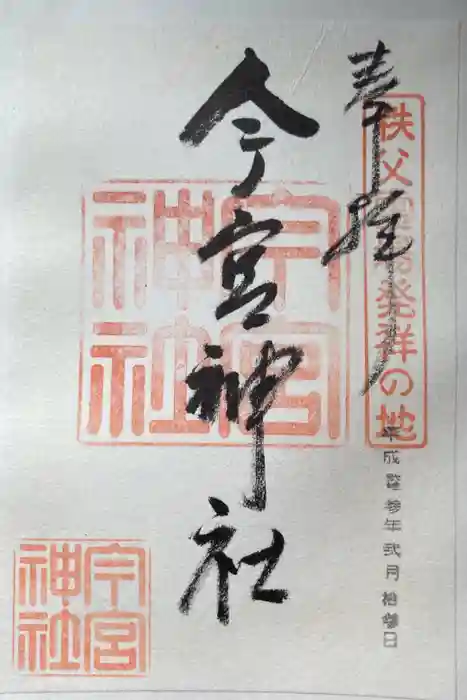 奉拝
秩父霊場発祥の地
今宮神社
今宮神社
平成参年弐月拾日
今宮神社